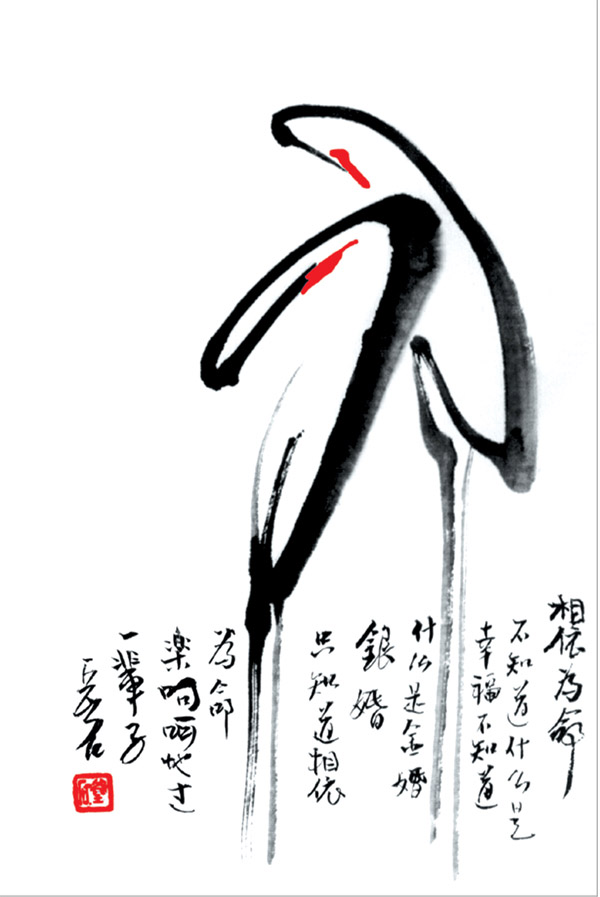 相依為命
不知道什么是
幸福不知道
什么是金婚
銀婚
只知道相依
為命
楽呵呵地过
一輩子